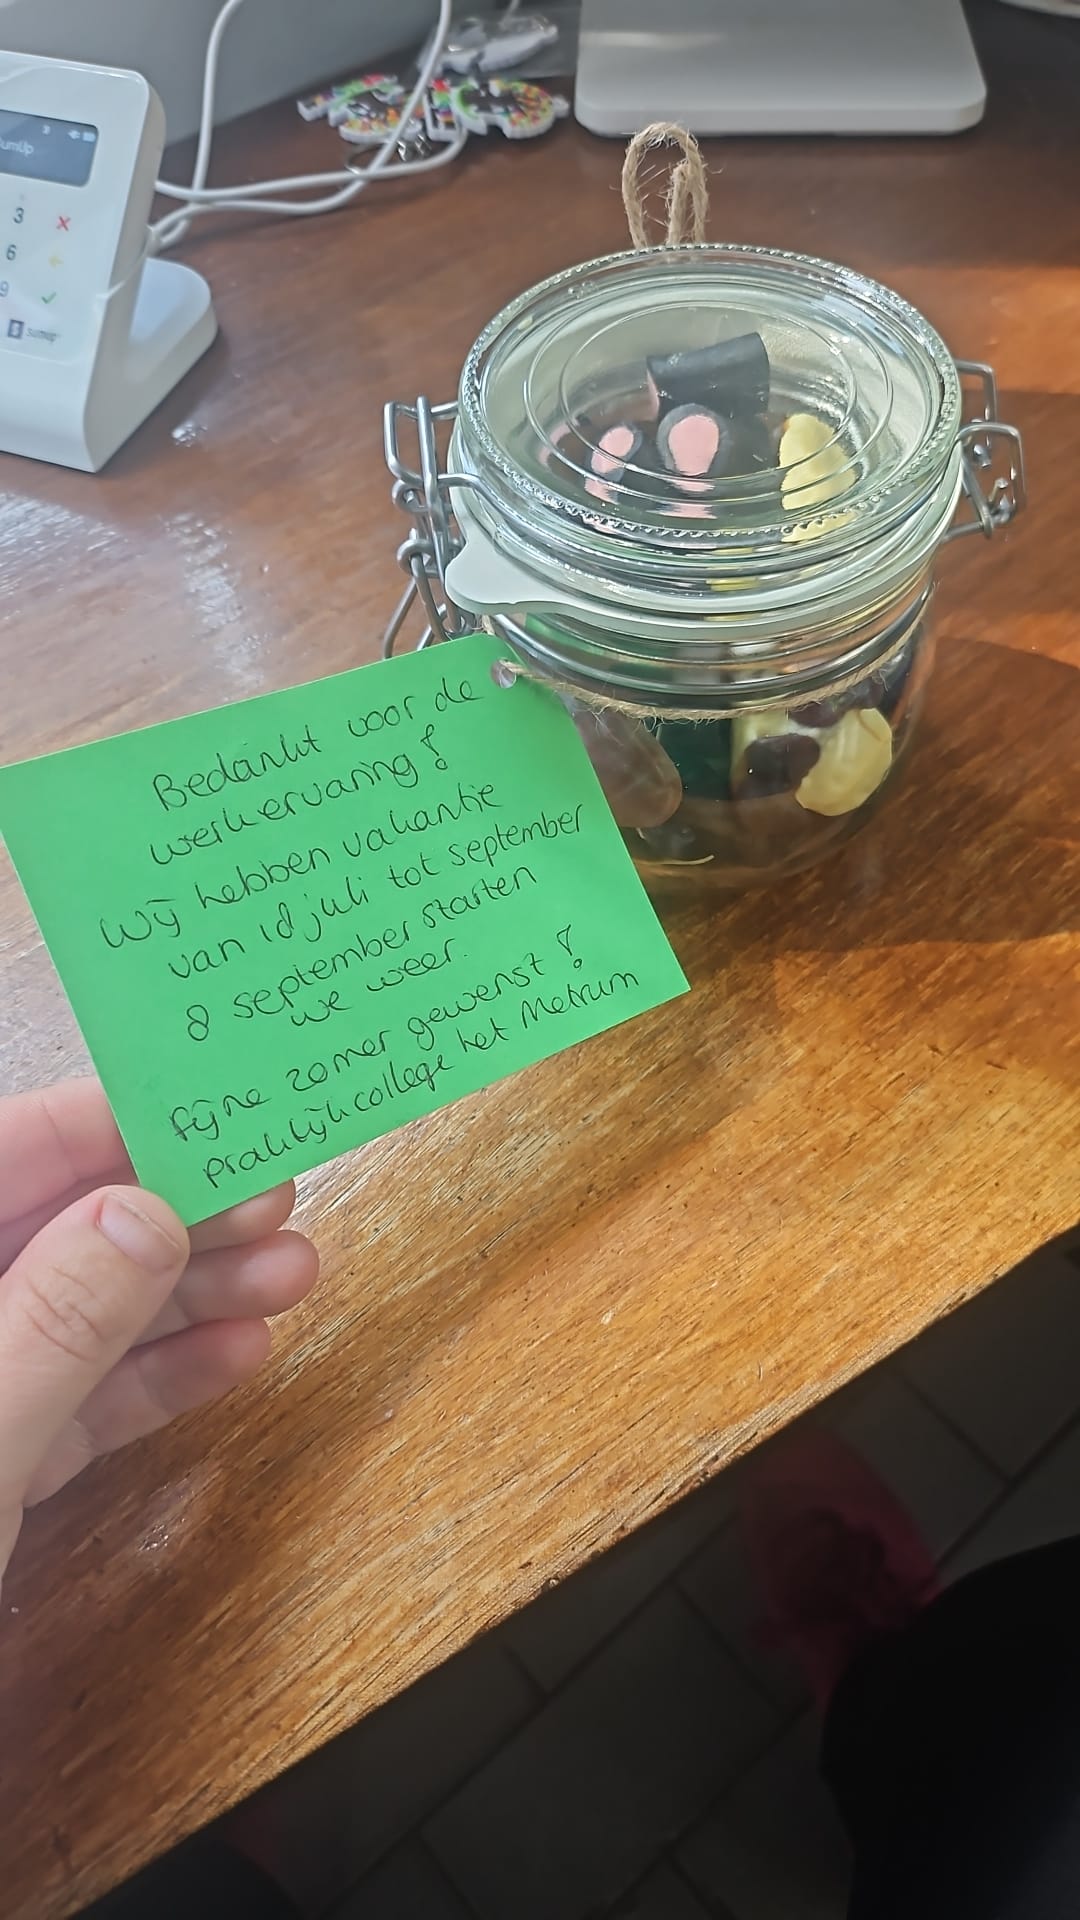 SumUp
3
6
9
sumup
Bedankt voor de
werkervaring!
Wij hebben vakantie
van 18 juli tot september
8 september starten
we weer.
Fijne zomer gewenst!
praktijkcollege het Metrum